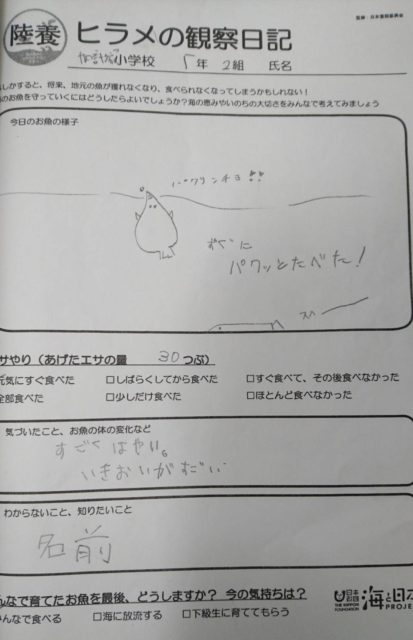 陸養 ヒラメの観察日記
監修：日本養殖振興会
小学校 5年 2組 氏名
しかすると、将来、地元の魚が獲れなくなり、食べられなくなってしまうかもしれない！
のお魚を守っていくにはどうしたらよいでしょうか？海の恵みやいのちの大切さをみんなで考えてみましょう
今日のお魚の様子
パクリンチョ!!
すぐに
パクッとたべた！
スパー
サやり（あげたエサの量 30つぶ）
元気にすぐ食べた □しばらくしてから食べた □すぐ食べて、その後食べなかった
全部食べた □少しだけ食べた □ほとんど食べなかった
気づいたこと、お魚の体の変化など
すごくはやい。
いきおいがすごい
わからないこと、知りたいこと
名前
んなで育てたお魚を最後、どうしますか？ 今の気持ちは？
みんなで食べる □海に放流する □下級生に育ててもらう
日本財団
THE NIPPON
FOUNDATION
海と日本
PROJE